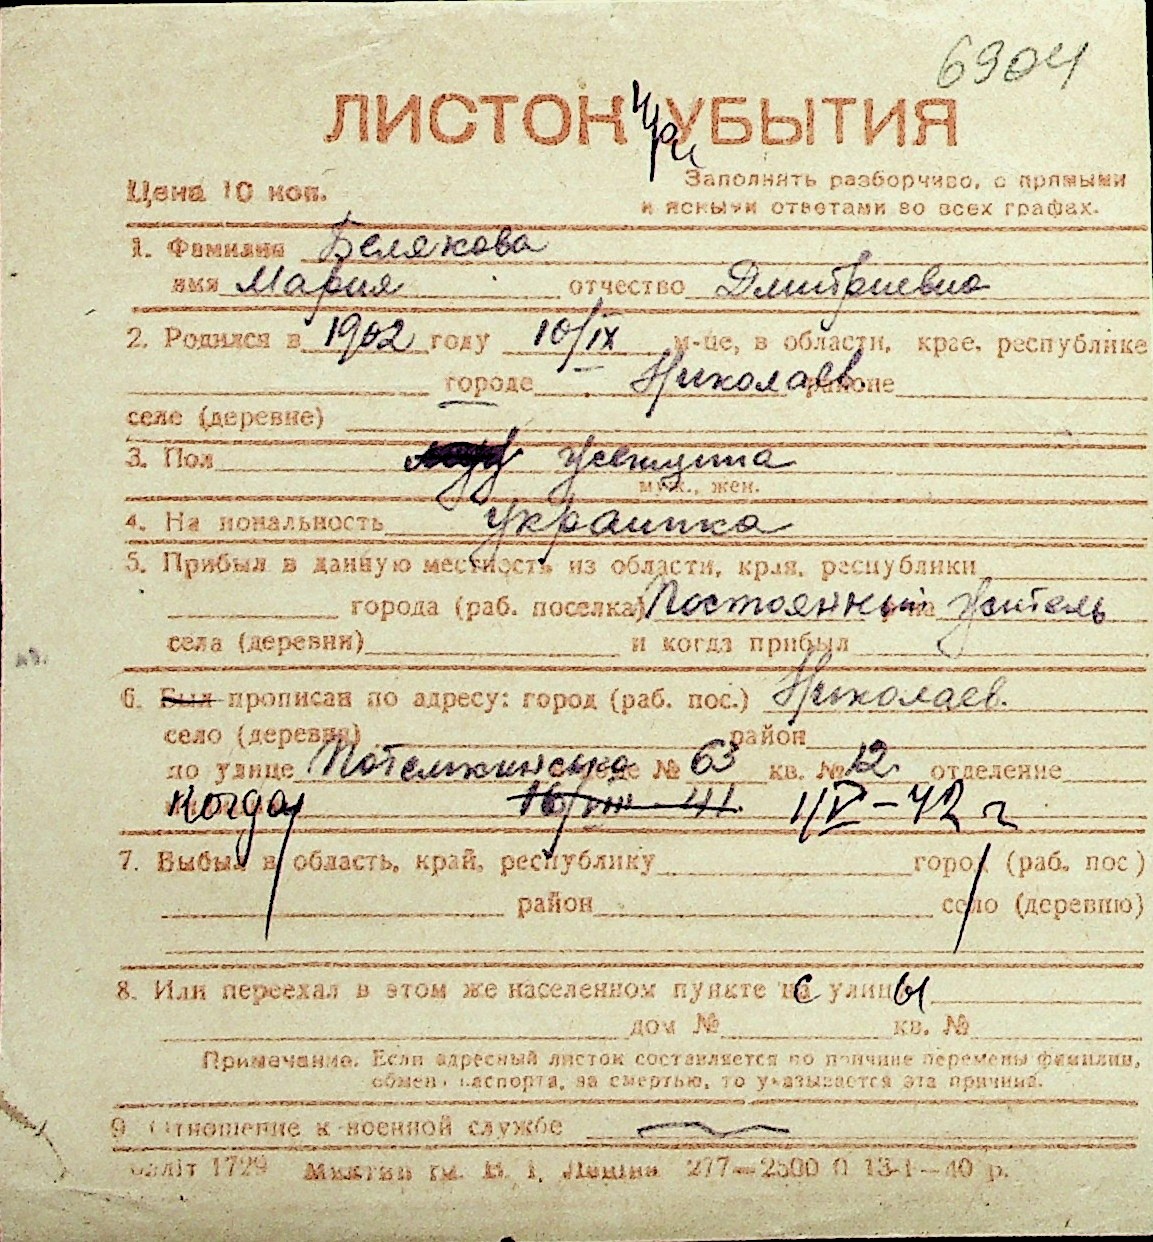 6904
ЛИСТОК при УБЫТИЯ
Цена 10 коп.
Заполнять разборчиво, с прямыми
и ясными ответами во всех графах.
1. Фамилия Белякова
имя Мария отчество Дмитриевна
2. Родился в 1902 году 10/IX м-це, в области, крае, республике
городе Николаев районе
селе (деревне)
3. Пол женщина
муж., жен.
4. Национальность украинка
5. Прибыл в данную местность из области, края, республики
города (раб. поселка) Постоянный р-на житель
села (деревни) и когда прибыл
6. Был прописан по адресу: город (раб. пос.) Николаев.
село (деревня) район
по улице Потемкинська доме № 63 кв. № 12. отделение
когда 16/VIII - 41. 1/V-42 г
7. Выбыл в область, край, республику город (раб. пос)
район село (деревню)
8. Или переехал в этом же населенном пункте с улицы
дом № кв. №
Примечание. Если адресный листок составляется по причине перемены фамилии,
обмена паспорта, за смертью, то указывается эта причина.
9. Отношение к военной службе
1729 277—2500 0 13-I—40 р.